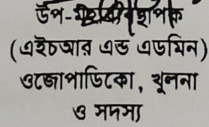 উপ-মহাব্যবস্থাপক
(এইচআর এন্ড এডমিন)
ওজোপাডিকো, খুলনা
ও সদস্য